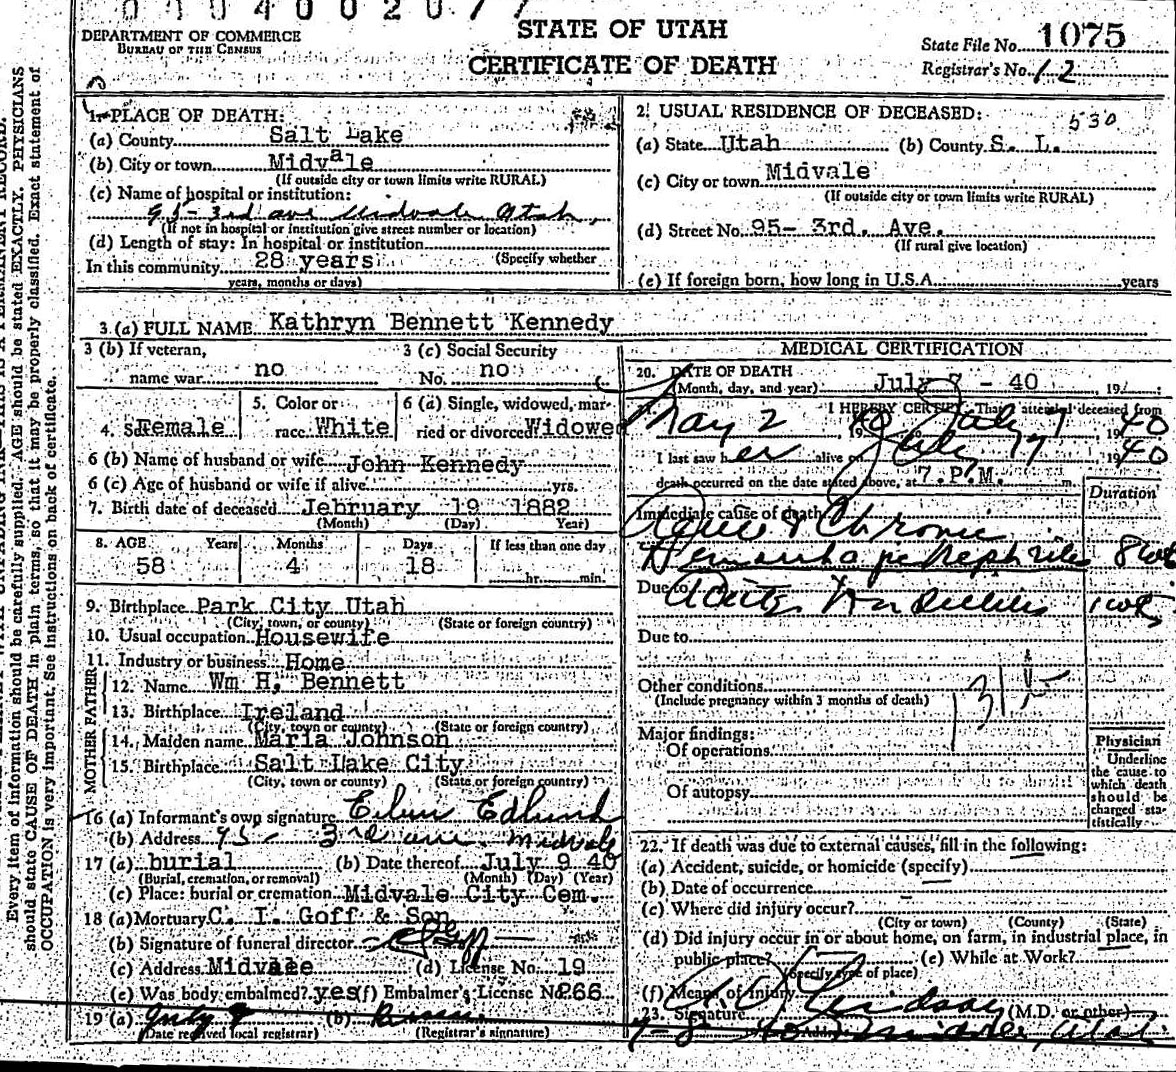 0004002077
DEPARTMENT OF COMMERCE
BUREAU OF THE CENSUS
STATE OF UTAH
CERTIFICATE OF DEATH
State File No. 1075
Registrar's No. 12
1. PLACE OF DEATH:
(a) County Salt Lake
(b) City or town Midvale
(If outside city or town limits write RURAL)
(c) Name of hospital or institution:
95 - 3rd ave Midvale Utah,
(If not in hospital or institution give street number or location)
(d) Length of stay: In hospital or institution
(Specify whether
In this community 28 years
years, months or days)
2. USUAL RESIDENCE OF DECEASED:
530
(a) State Utah (b) County S. L.
(c) City or town Midvale
(If outside city or town limits write RURAL)
(d) Street No. 95- 3rd. Ave.
(If rural give location)
(e) If foreign born, how long in U.S.A. years
3. (a) FULL NAME Kathryn Bennett Kennedy
3 (b) If veteran,
name war no
3 (c) Social Security
No. no
4. Sex Female
5. Color or
race White
6 (a) Single, widowed, mar-
ried or divorced Widowed
6 (b) Name of husband or wife John Kennedy
6 (c) Age of husband or wife if alive yrs.
7. Birth date of deceased Jebruary 19 1882
(Month) (Day) Year)
8. AGE Years Months Days If less than one day
58 4 18 hr. min.
9. Birthplace Park City Utah
(City, town, or county) (State or foreign country)
10. Usual occupation Housewife
11. Industry or business Home
FATHER
12. Name Wm H. Bennett
13. Birthplace Ireland
(City, town or county) (State or foreign country)
MOTHER
14. Maiden name Maria Johnson
15. Birthplace Salt Lake City
(City, town or county) (State or foreign country)
16 (a) Informant's own signature Edlund
(b) Address 95 - 3rd ave. Midvale
17 (a) burial (b) Date thereof July 9 40
(Burial, cremation, or removal) (Month) (Day) (Year)
(c) Place: burial or cremation Midvale City Cem.
18 (a) Mortuary C. I. Goff & Son
(b) Signature of funeral director
(c) Address Midvale (d) License No. 19
(e) Was body embalmed? yes (f) Embalmer's License No. 266
19 (a) July 9 (b)
Date received local registrar) (Registrar's signature)
MEDICAL CERTIFICATION
20. DATE OF DEATH
(Month, day, and year) July 7 - 40 19
I HEREBY CERTIFY, That I attended deceased from
May 2 19 40 to July 7 1940
I last saw her alive on July 7 1940
death occurred on the date stated above, at 7.P.M. m.
Duration
Immediate cause of death
Acute & Chronic
Hemorrhage Nephritis 8 wk
Due to Acute 1 wk
Due to
Other conditions
(Include pregnancy within 3 months of death)
131
Major findings:
Of operations
Of autopsy
Physician
Underline
the cause to
which death
should be
charged sta-
tistically
22. If death was due to external causes, fill in the following:
(a) Accident, suicide, or homicide (specify)
(b) Date of occurrence
(c) Where did injury occur?
(City or town) (County) (State)
(d) Did injury occur in or about home, on farm, in industrial place, in
public place? (e) While at Work?
(Specify type of place)
(f) Means of Injury
23. Signature Lindsay (M.D. or other)
7-8 40 Address Midvale, Utah
Every item of information should be carefully supplied. AGE should be stated EXACTLY. PHYSICIANS
should state CAUSE OF DEATH in plain terms, so that it may be properly classified. Exact statement of
OCCUPATION is very important. See instructions on back of certificate.